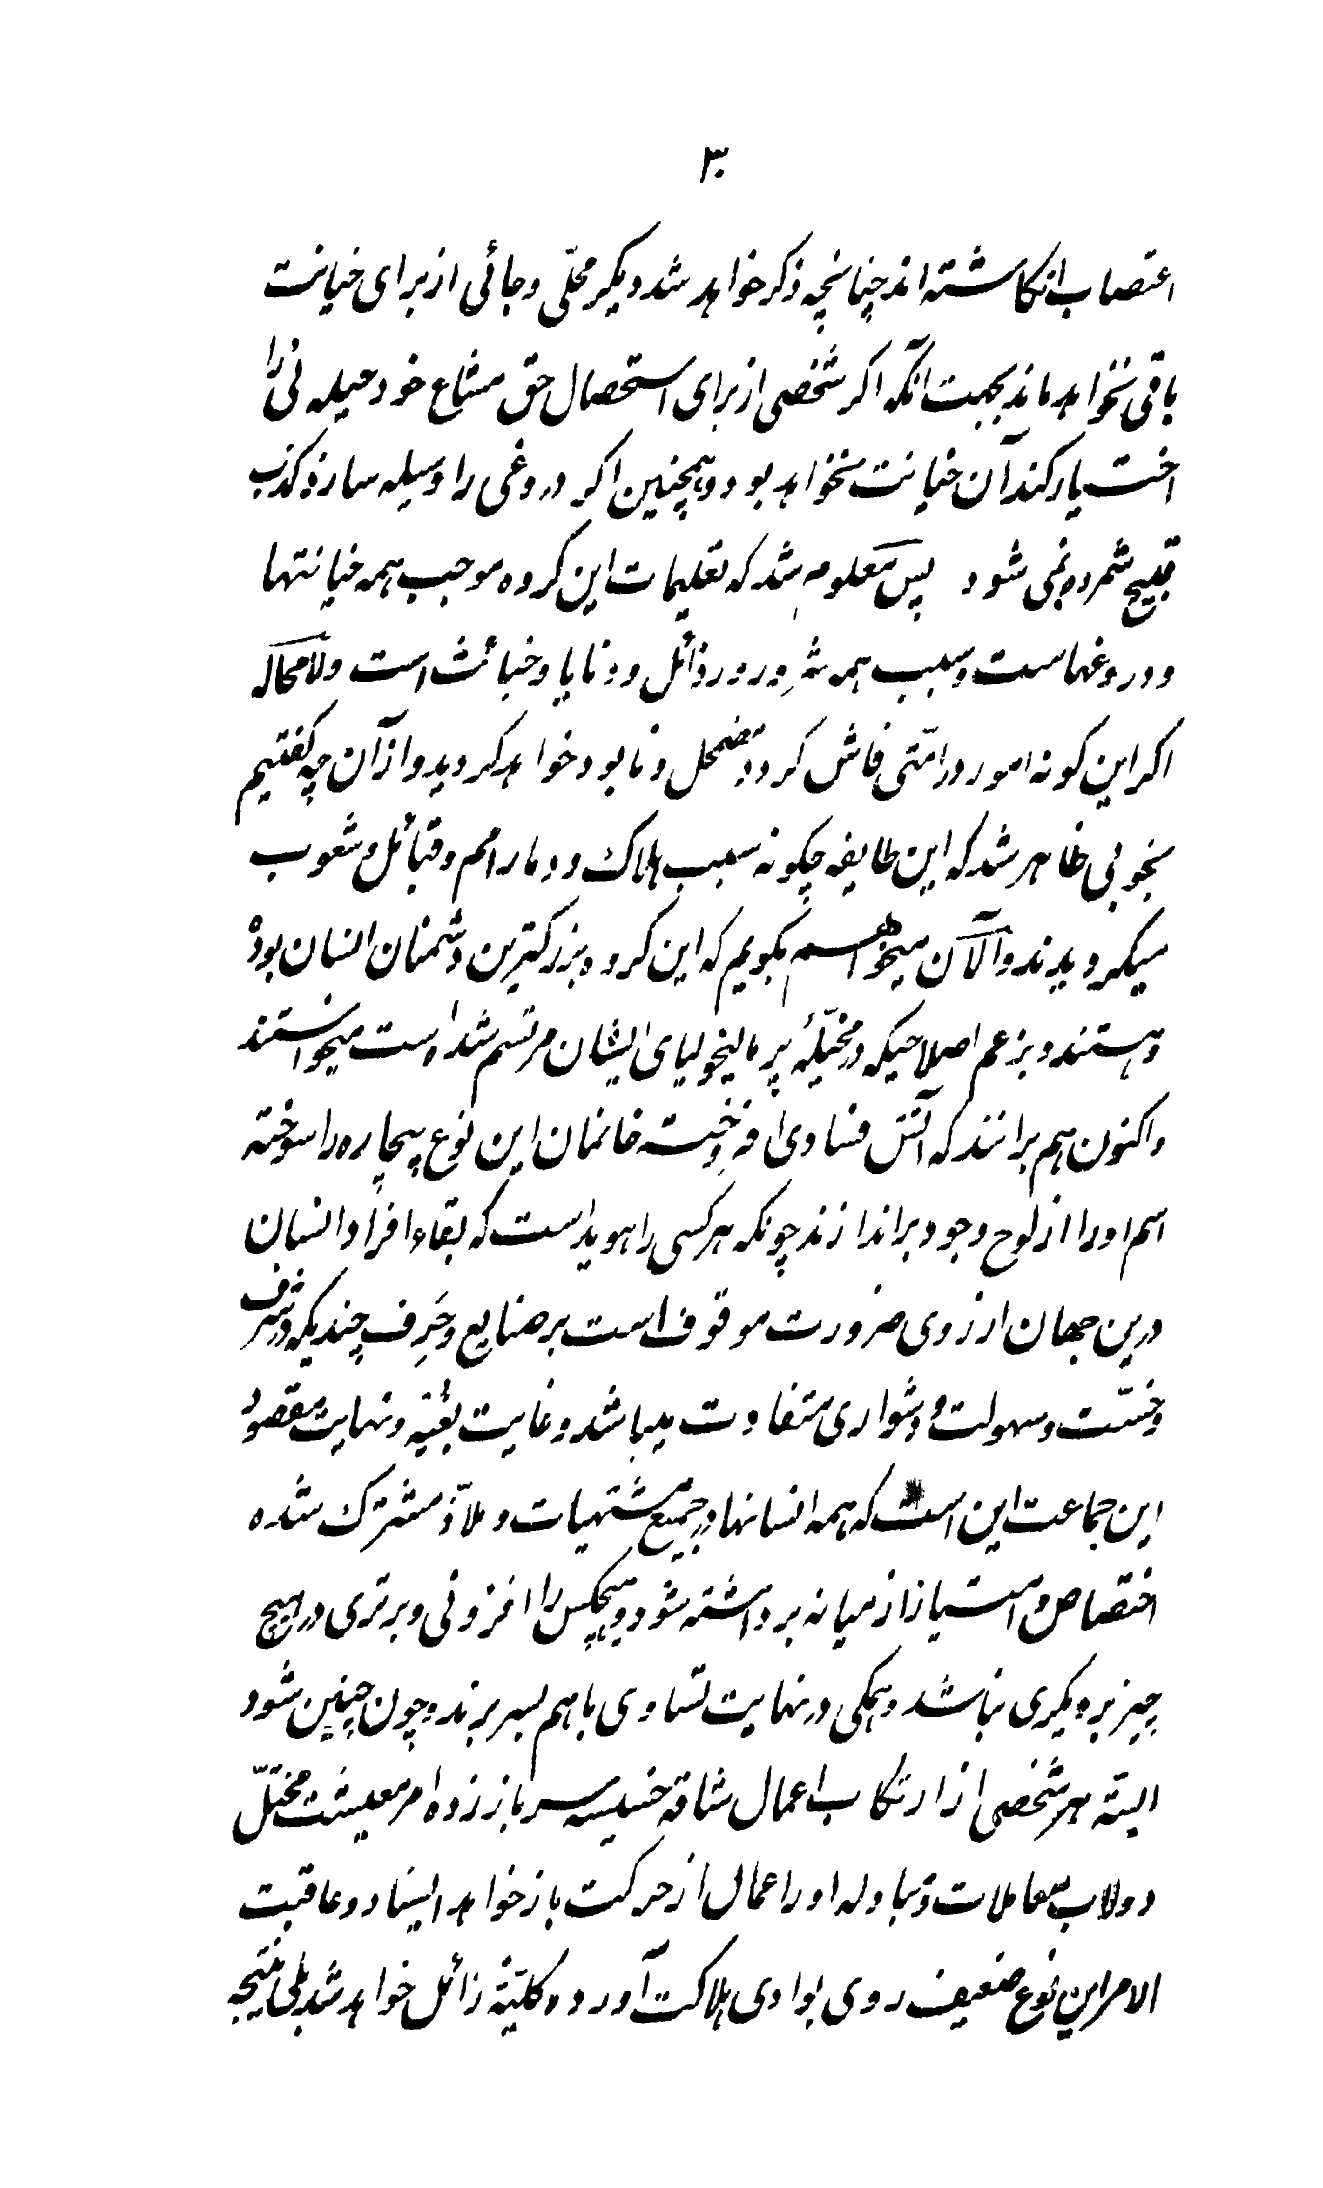 ۳۰
اغتصاب انکاشته اند چنانچه ذکر خواهد شد دیکر محلّی و جائی از برای خیانت
باقی نخواهد ماند بجهت آنکه اکر شخصی از برای استحصال حق مشاع خود حیله ئی را
اختیار کند آن خیانت نخواهد بود و همچنین اکر دروغی را وسیله سازد کذب
قبیح شمرده نمی شود پس معلوم شد که تعلیمات این کروه موجب همه خیانتها
و دروغهاست و سبب همه شرور و رذائل و دنایا و خبائث است و لامحاله
اکر این کونه امور در امّتی فاش کردد مضمحل و نابود خواهد کردید و از آن چه کفتیم
بخوبی ظاهر شد که این طایفه چکونه سبب هلاک و دمار امم و قبائل و شعوب
میکردیدند و الآن میخواهم بکویم که این کروه بزرکترین دشمنان انسان بوده
و هستند و بزعم اصلاحیکه در مخیّلهٔ پر مالیخولیای ایشان مرتسم شده است میخواستند
و اکنون هم برانند که آتش فسادی افروخته خانمان این نوع بیچاره را سوخته
اسم او را از لوح وجود براندازند چونکه هر کسی را هویداست که بقاء افراد انسان
درین جهان از روی ضرورت موقوف است بر صنایع و حَرِف چندیکه در شرف
و خسّت و سهولت و دشواری متفاوت میباشد و غایت بغیه و نهایت مقصود
این جماعت این است که همه انسانها در جمیع مشتهیات و ملاذّ مشترک شده
اختصاص و امتیاز از میانه برداشته شود و هیچکس را افزونی و برتری در هیچ
چیز بر دیکری نباشد و همکی در نهایت تساوی با هم بسر برند و چون چنین شود
البته هر شخصی از ارتکاب اعمال شاقه خسیسه سر باز زده امر معیشت مختلّ
دولاب معاملات و تبادله اورا اعمال از حرکت باز خواهد ایستاد و عاقبت
الامر این نوع ضعیف روی بوادی هلاکت آورده کلیّة زائل خواهد شد بلی نتیجه